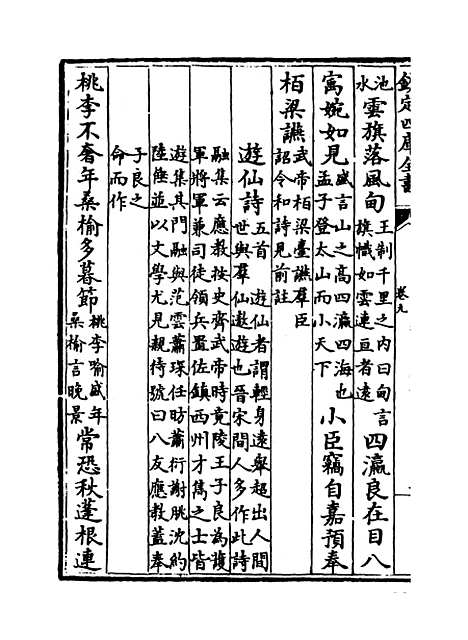 欽定四庫全書 卷九
池水雲旗落風甸王制千里之内曰甸言旗幟如雲連亘者遠四瀛良在目八
寓婉如見盛言山之高四瀛四海也孟子登太山而小天下小臣竊自嘉預奉
栢梁讌武帝栢梁臺讌羣臣詔令和詩見前註
遊仙詩五首 遊仙者謂輕身遠舉超出人間世與羣仙遨遊也晉宋間人多作此詩
融集云應教按史齊武帝時竟陵王子良為護
軍將軍兼司徒領兵置佐鎮西州才雋之士皆
遊集其門融與范雲蕭琛任昉蕭衍謝朓沈約
陸倕並以文學尤見親待號曰八友應教蓋奉
子良之
命而作
桃李不奢年桑榆多暮節桃李喻盛年桑榆言晚景常恐秋蓬根連